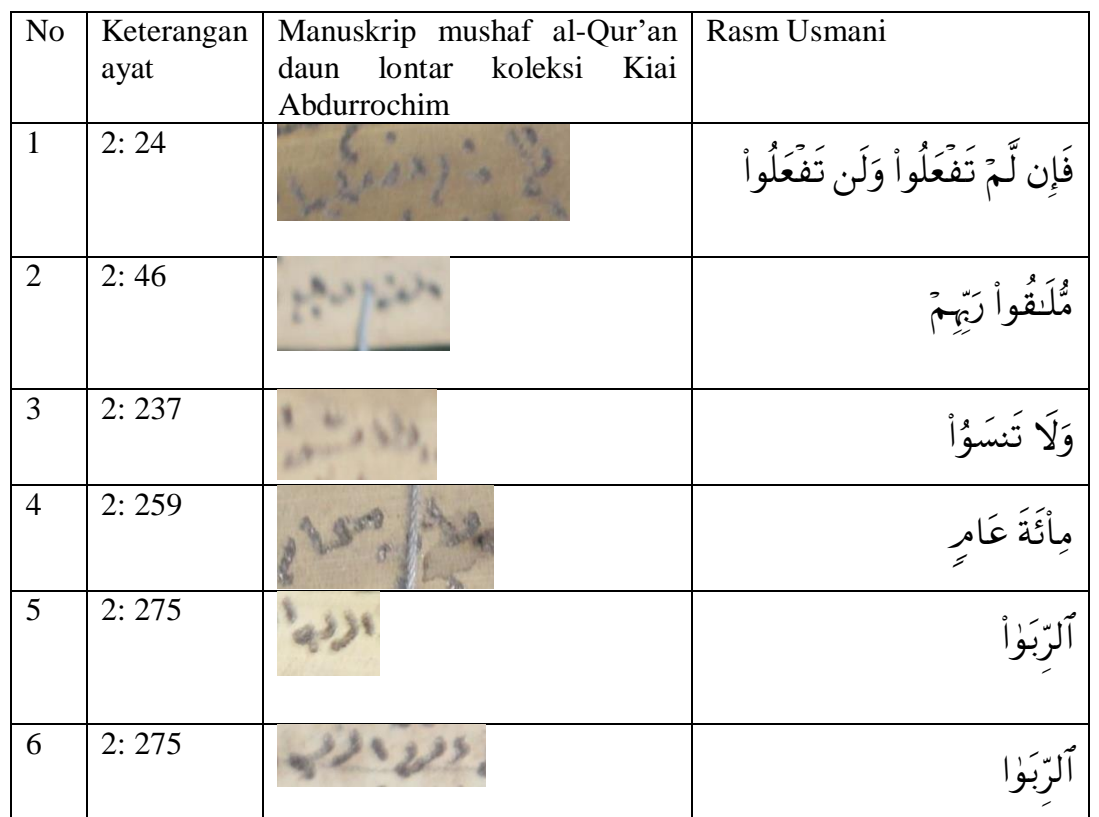 No Keterangan ayat Manuskrip mushaf al-Qur’an daun lontar koleksi Kiai Abdurrochim Rasm Usmani
1 2: 24 فَإِن لَّمۡ تَفۡعَلُواْ وَلَن تَفۡعَلُواْ
2 2: 46 مُّلَٰقُواْ رَبِّهِمۡ
3 2: 237 وَلَا تَنسَوُاْ
4 2: 259 مِاْئَةَ عَامٖ
5 2: 275 ٱلرِّبَوٰاْ
6 2: 275 ٱلرِّبَوٰا